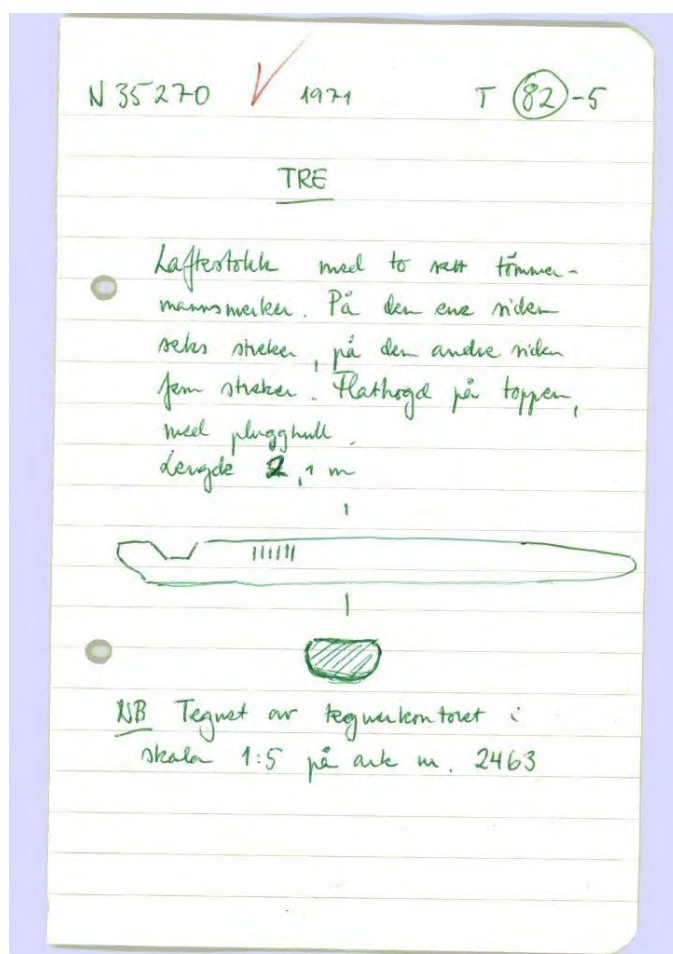 N 35270 1971 T 82-5
TRE
Laftestokk med to sett tömmer-
mannsmerker. På den ene siden
seks streker, på den andre siden
fem streker. Flathogd på toppen,
med plugghull.
Lengde 2,1 m
NB Tegnet av tegnerkontoret i
skala 1:5 på ark nr. 2463